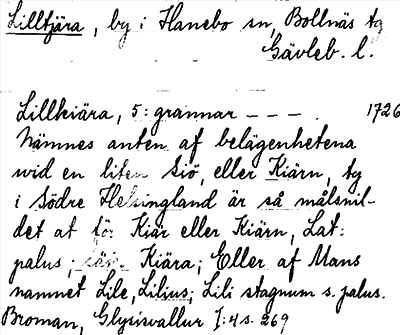 Lilltjära, by i Hanebo sn, Bollnäs tg
Gävleb. l.
Lillkiära, 5: grannar – – – . 1726
Nämnes anten af belägenhetena
wid en liten Siö, eller Kiärn, ty
i Södre Helsingland är så målsnil-
det at för Kiär eller Kiärn, Lat:
palus; Kiära; Eller af Mans
namnet Lile, Lilius; Lili stagnum s. palus.
Broman, Glysisvallur I: 4 s. 269